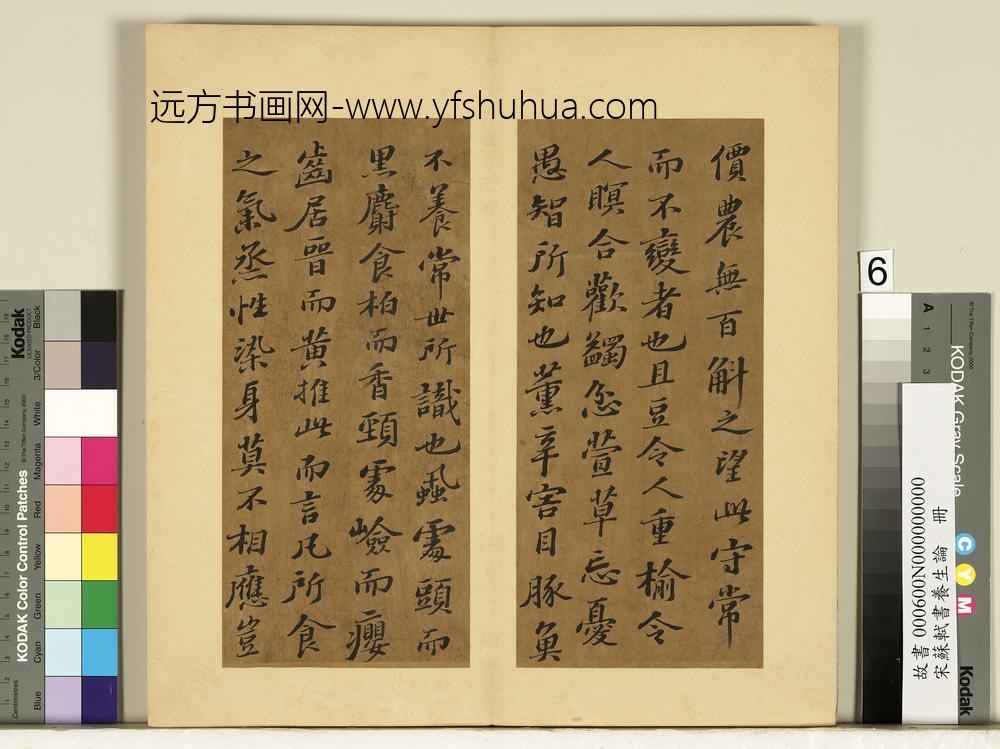 远方书画网-www.yfshuhua.com
價農無百斛之望此守常
而不變者也且豆令人重榆令
人瞑合歡蠲忿萱草忘憂
愚智所知也薰辛害目豚魚
不養常世所識也蝨處頭而
黑麝食柏而香頸處嶮而癭
齒居晉而黃推此而言凡所食
之氣蒸性染身莫不相應豈
6
故書 000600N000000000
宋蘇軾書養生論 冊
KODAK Gray Scale
A 1 2 3
C Y M
Kodak
© The Tiffen Company, 2000
Kodak
LICENSED PRODUCT
KODAK Color Control Patches
© The Tiffen Company, 2000
Centimetres
Blue
Cyan
Green
Yellow
Red
Magenta
White
3/Color
Black